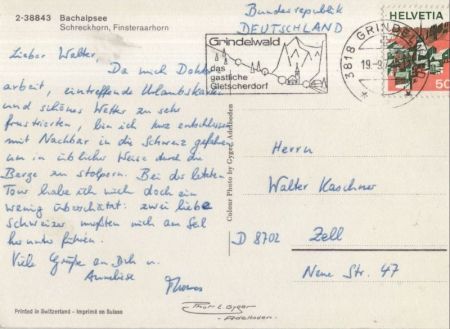 2-38843 Bachalpsee
Schreckhorn, Finsteraarhorn
Bundesrepublik
DEUTSCHLAND
Grindelwald
das
gastliche
Gletscherdorf
3818 GRINDELWALD
19.-9.
HELVETIA
50
Lieber Walter
Da mich Doktor
arbeit, eintreffende Urlaubskarten
und schönes Wetter zu sehr
frustrierten, bin ich kurz entschlossen
mit Nachbar in die Schweiz gefahren
um in üblicher Weise durch die
Berge zu stolpern. Bei der letzten
Tour habe ich mich doch ein
wenig überschätzt: zwei liebe
Schweizer mußten mich am Seil
herunter führen.
Viele Grüße an Dich u.
Anneliese
Thomas
Colour Photo by Gyger, Adelboden
Herrn
Walter Kaschner
D 8702 Zell
Neue Str. 47
Printed in Switzerland - Imprimé en Suisse
Gyger
Adelboden